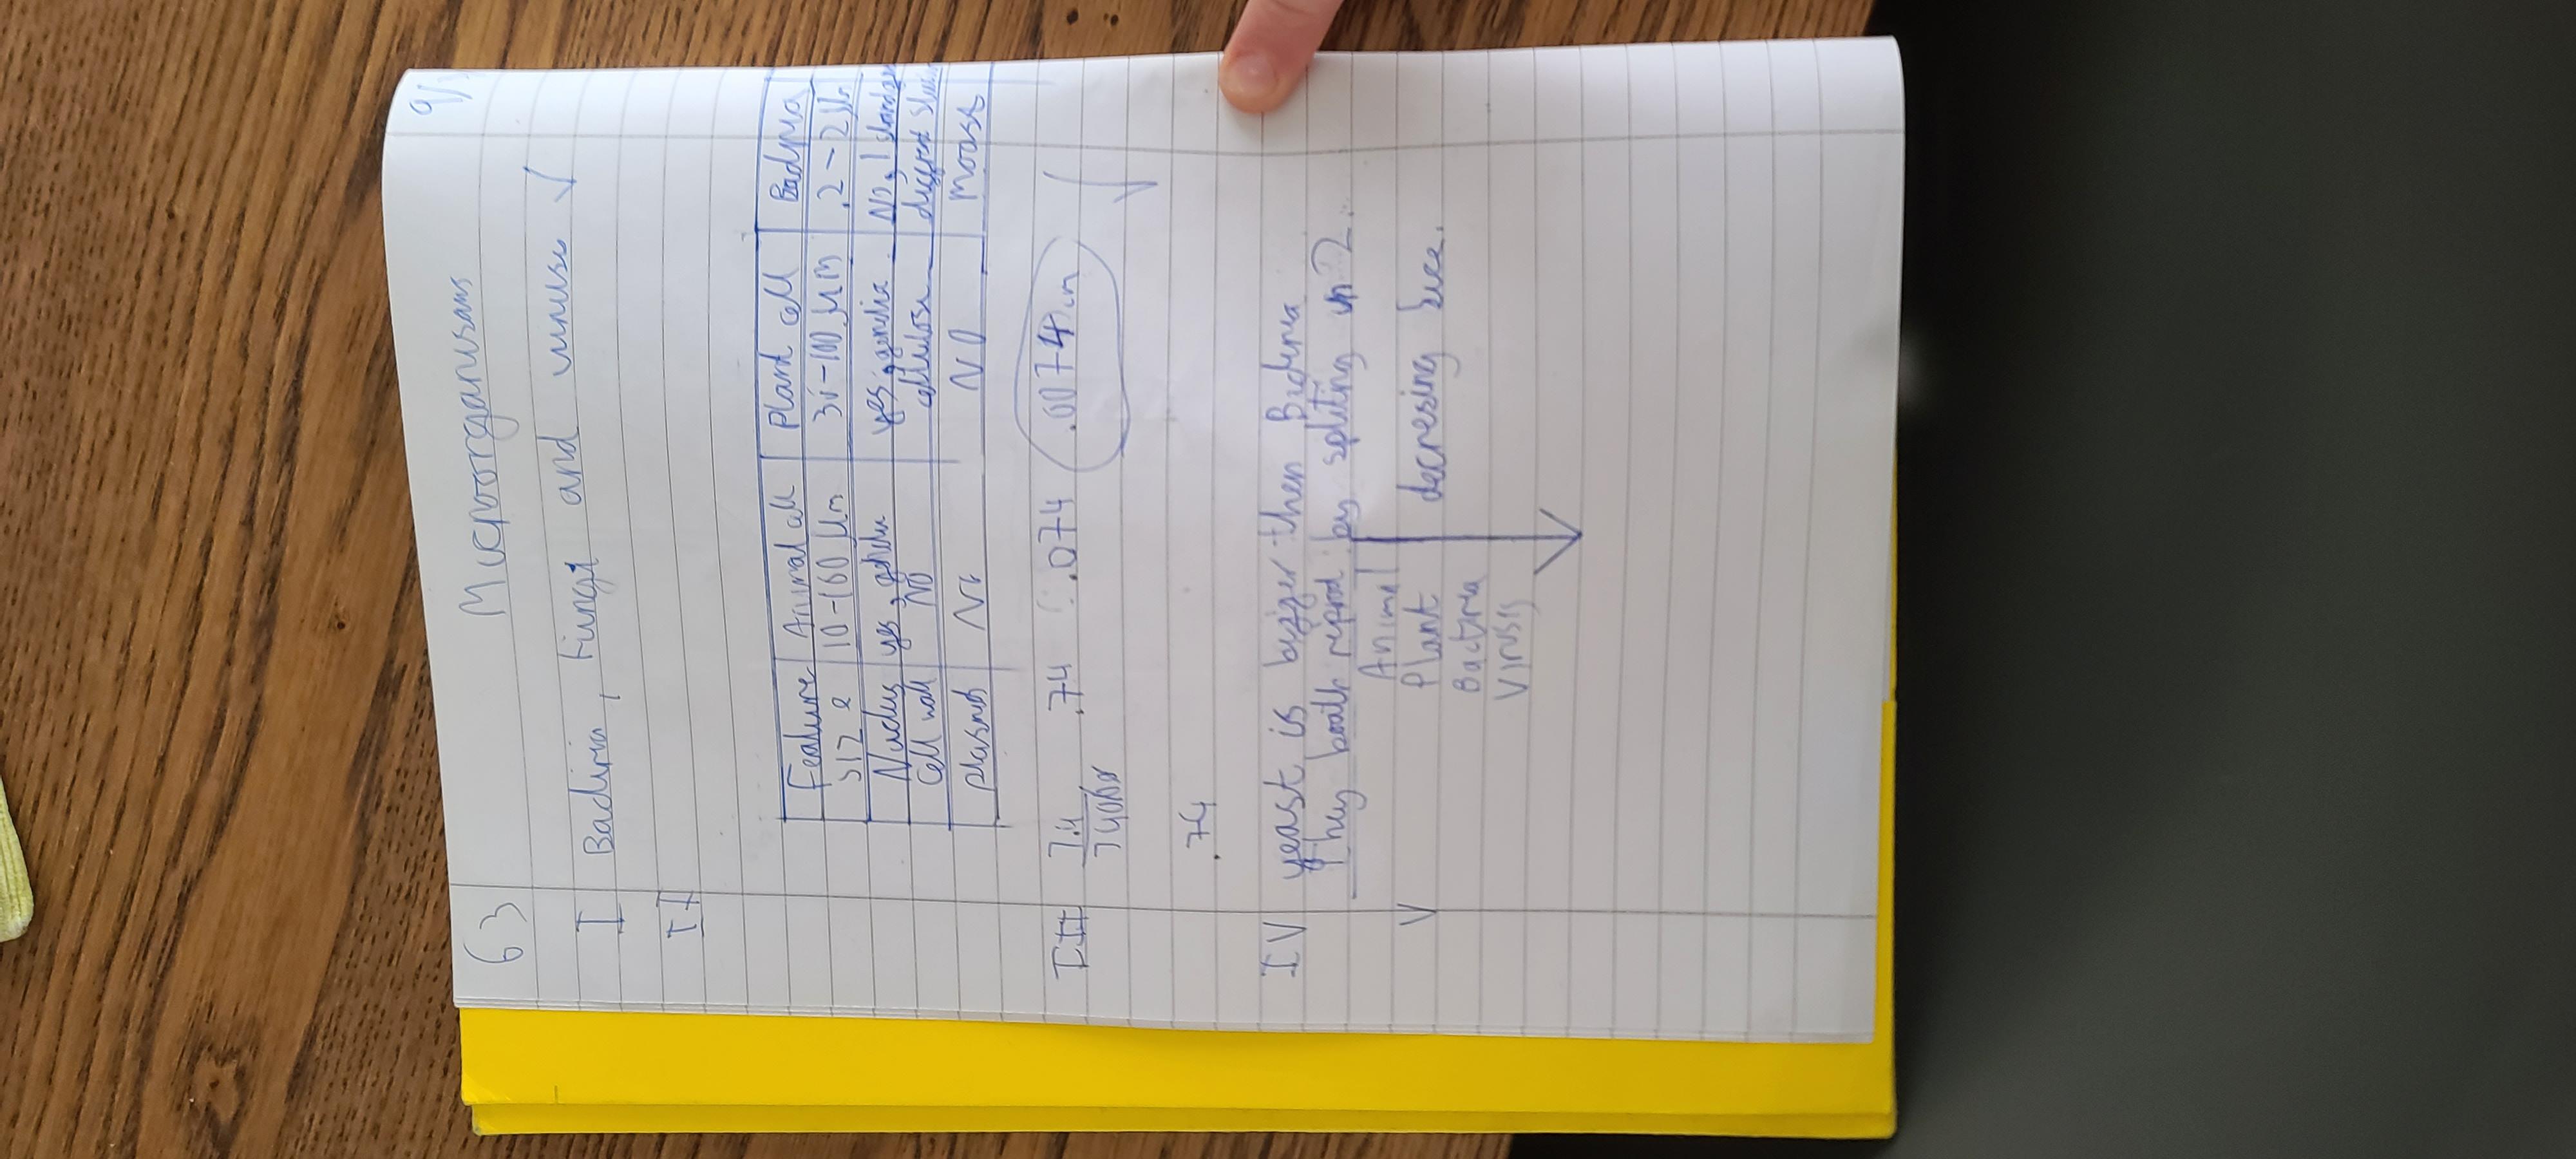 63 Microorganisms 9/
I Bactiria, Fungi and viruses ✓
II
Feature Animal cell Plant cell Bactiria
size 10-100 µm 30-100 µm .2-2
Nucleus yes, yes, No, 1
cell wall NO cellulose different
plasmids No NO Moost
III 7.4 .74 .074 .0074

.74
IV yeast is bigger then Bacteria
They boath reprod by spliting in 2.
Animal
Plant decresing size.
Bactiria
Virusis